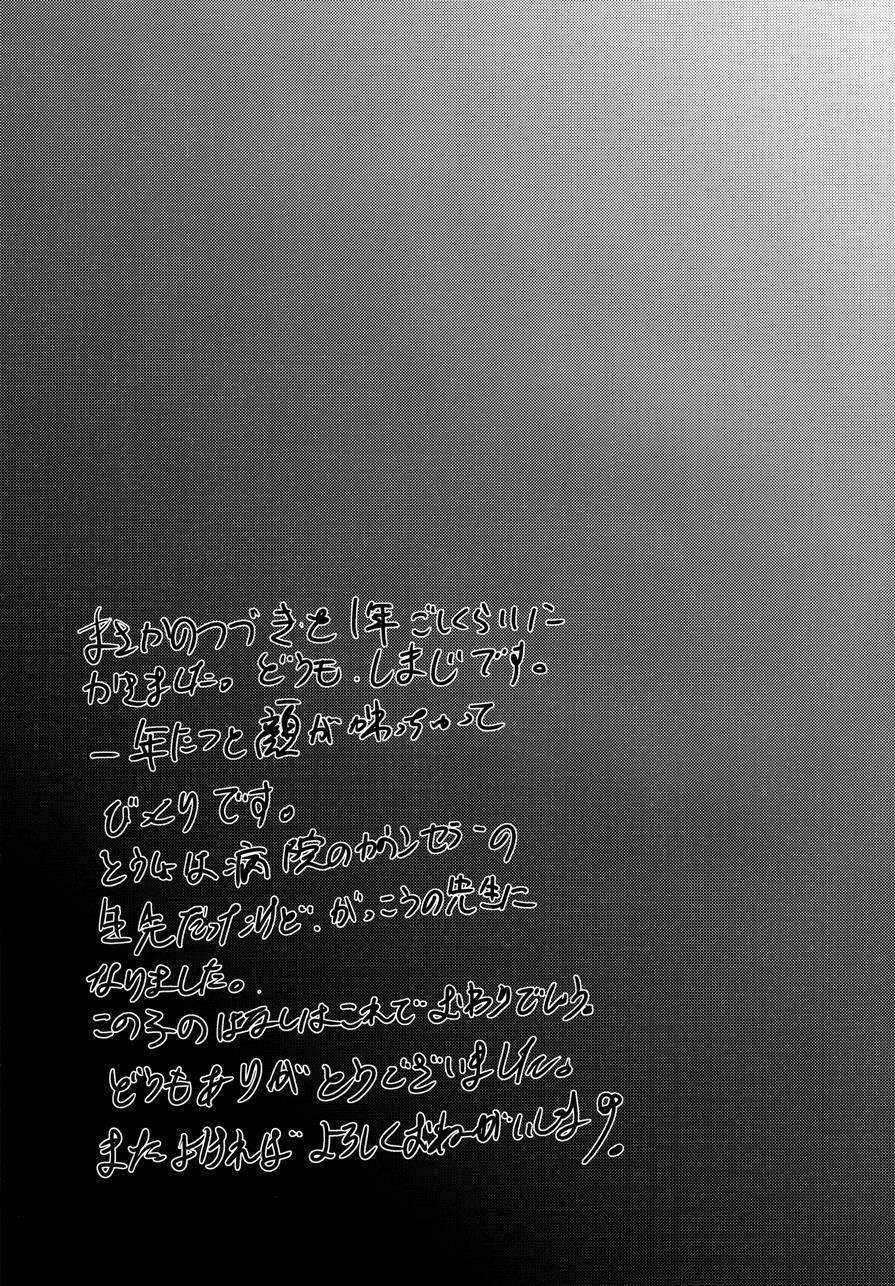 まさかのつづきを1年ごしくらいに
かきました。どうも.しまじです。
一年たつと顔が変っちゃって
びっくりです。
とうしょは病院のカウンセラーの
先生だったけど.がっこうの先生に
なりました。.
この子のはなしはこれでおわりでしょう。
どうもありがとうございました。
またよければ よろしくおねがいします。